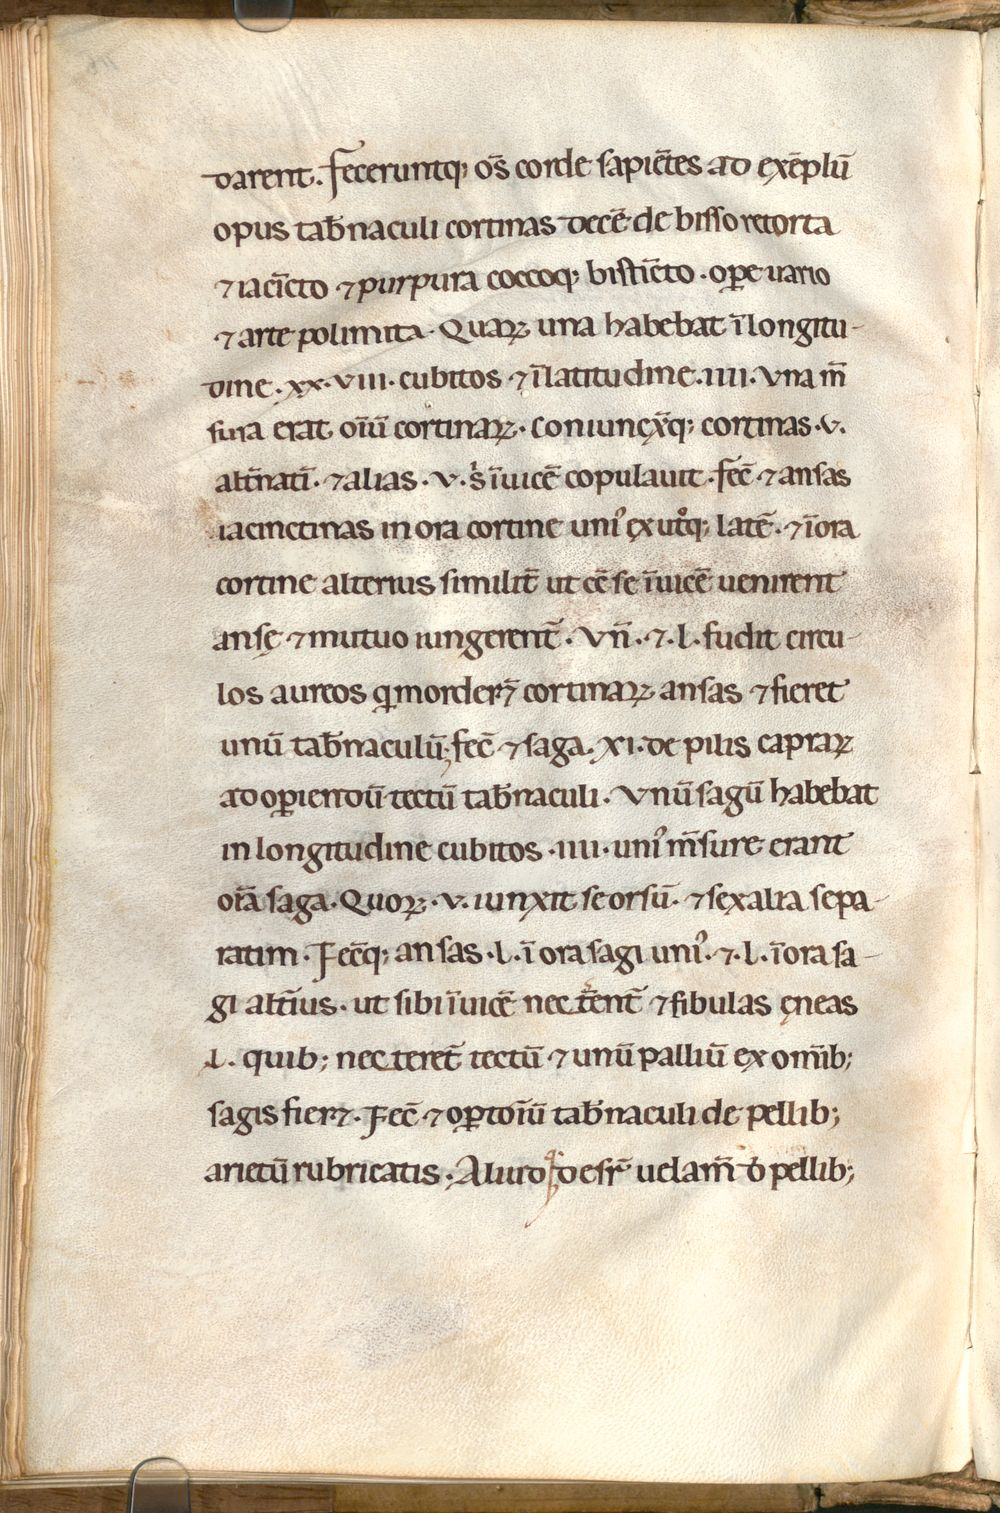 darent. Feceruntq; om̄s corde sapiētes ad exēplū
opus tab̄naculi cortinas decē de bisso retorta
⁊ iacīcto ⁊ purpura coccoq; bistīcto · oꝑe uario
⁊ arte polimita · Quaꝝ una habebat ī longitu-
dine · xx · viii · cubitos ⁊ ī latitudine · iiii · Vna m̄
sura erat oīū cortinaꝝ · Coniunx̄q; cortinas · v ·
alt̄natī · ⁊ alias · v · s̄ īuicē copulauit · fec̄ ⁊ ansas
iacinctinas in ora cortine uniꝰ ex utͦq; lat̄e · ⁊ ī ora
cortine alterius similit̄ ut c̄t se īuicē uenirent
ansę ⁊ mutuo iungerent̄ · Vn̄ · ⁊ · l · fudit circu-
los aureos q morder̄ cortinaꝝ ansas ⁊ fieret
unū tab̄naculū; fec̄ ⁊ saga · xi · de pilis capraꝝ
ad oꝑiendū tectū tab̄naculi · Vnū sagū habebat
in longitudine cubitos · iiii · uniꝰ m̄sure erant
oīa saga · Quoꝝ · v · iunxit seorsū · ⁊ sex alia sepa-
ratim · Fec̄q; ansas · l · ī ora sagi uniꝰ · ⁊ · l · ī ora sa-
gi alt̄ius · ut sibi īuicē necter̄ent̄ ⁊ fibulas ęneas
l · quib; necteret̄ tectū ⁊ unū palliū ex omīb;
sagis fier⁊ · Fec̄ ⁊ oꝑtoīū tab̄naculi de pellib;
arietū rubricatis · Aliud desr̄ uelam̄ d pellib;